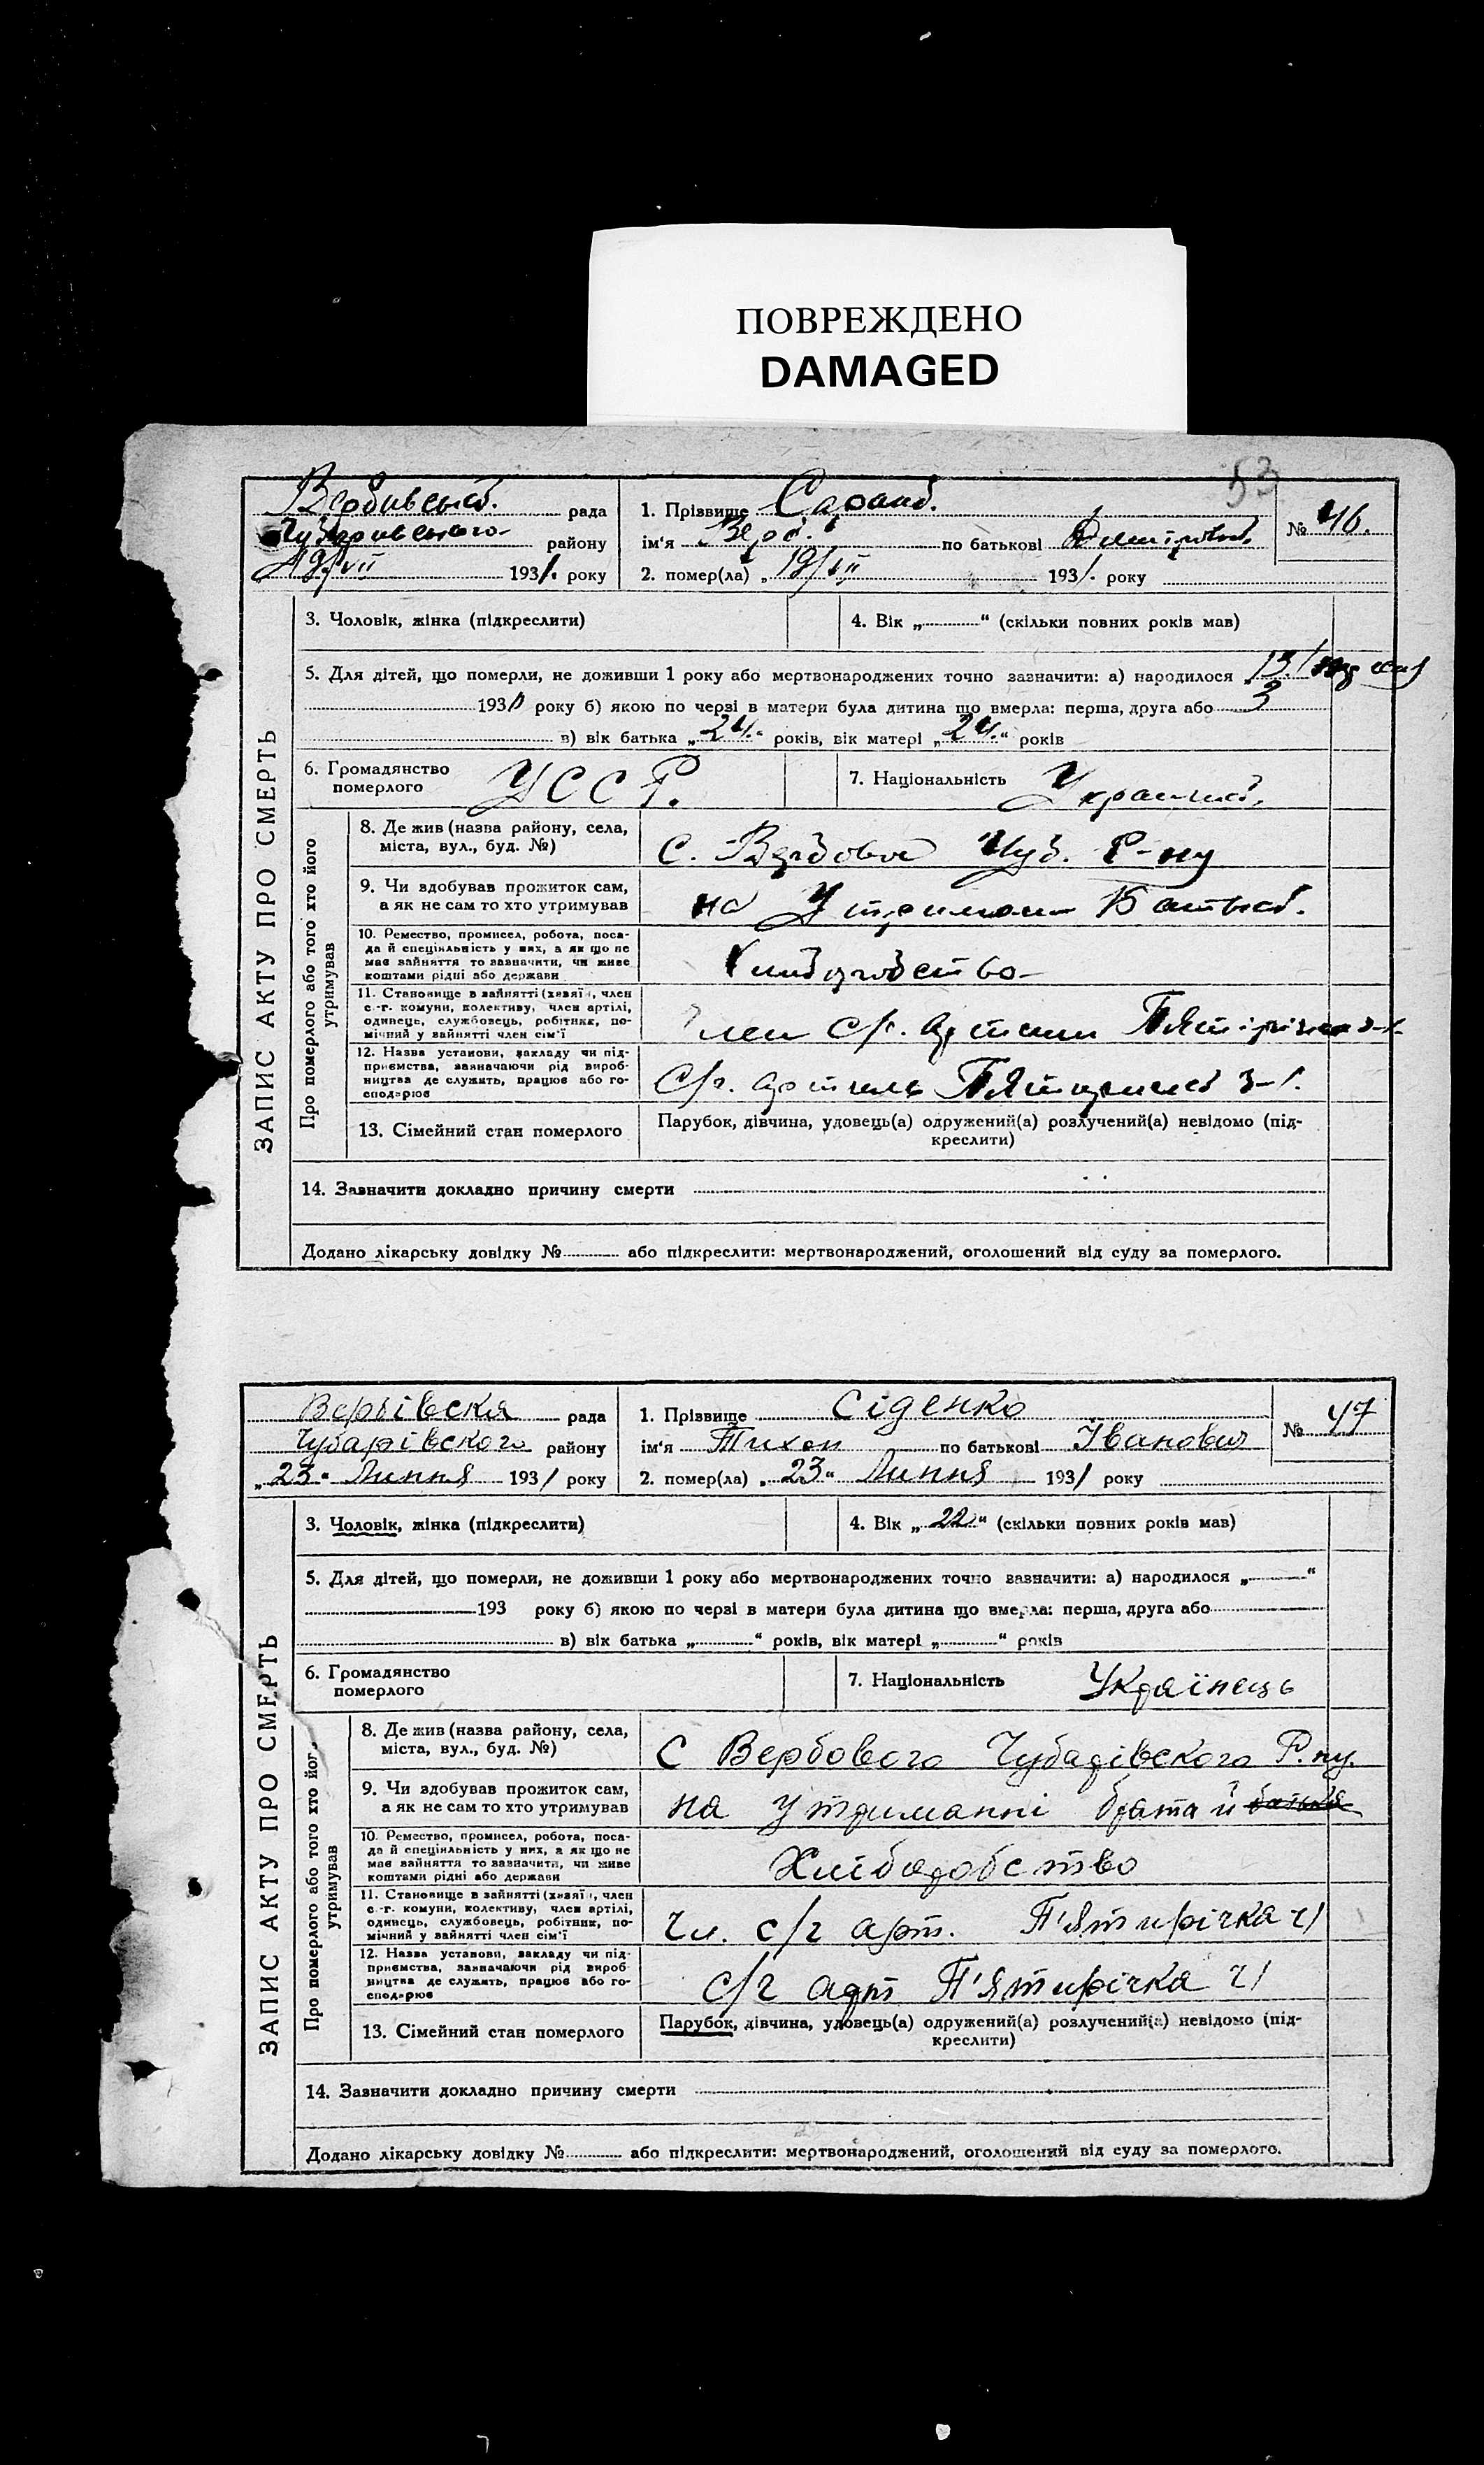 ПОВРЕЖДЕНО
DAMAGED
53
ЗАПИС АКТУ ПРО СМЕРТЬ
Вербивська рада
Чубаривського району
19/VII 1931. року
1. Прізвище
ім'я Вера по батькові
№ 46.
2. помер(ла) „ 19/VII 1931. року
3. Чоловік, жінка (підкреслити)
4. Вік „ “ (скільки повних років мав)
5. Для дітей, що померли, не доживши 1 року або мертвонароджених точно зазначити: а) народилося 13/
193 року б) якою по черзі в матери була дитина що вмерла: перша, друга або 3
в) вік батька „24.“ років, вік матері „24.“ років
6. Громадянство померлого УССР.
7. Національність
Про померлого або того хто його утримував
8. Де жив (назва району, села,
міста, вул., буд. №)
С. Вербовое Чуб. Р-ну
9. Чи здобував прожиток сам,
а як не сам то хто утримував
на
10. Ремество, промисел, робота, поса-
да й спеціяльність у них, а як що не
має зайняття то зазначити, чи живе
коштами рідні або держави
11. Становище в зайнятті (хазяїн, член
с.-г. комуни, колективу, член артілі,
одинець, службовець, робітник, по-
мічний у зайнятті член сім'ї
член С/г.
12. Назва установи, закладу чи під-
приємства, зазначаючи рід вироб-
ництва де служить, працює або го-
сподарює
С/г. артиль
13. Сімейний стан померлого
Парубок, дівчина, удовець(а) одружений(а) розлучений(а) невідомо (під-
креслити)
14. Зазначити докладно причину смерти
Додано лікарську довідку № або підкреслити: мертвонароджений, оголошений від суду за померлого.
ЗАПИС АКТУ ПРО СМЕРТЬ
Вербівська рада
Чубарівського району
„23“ Липня 1931 року
1. Прізвище Сіденко
ім'я Тихон по батькові Іванович
№ 47
2. помер(ла) „23“ Липня 1931 року
3. Чоловік, жінка (підкреслити)
4. Вік „22“ (скільки повних років мав)
5. Для дітей, що померли, не доживши 1 року або мертвонароджених точно зазначити: а) народилося „ “
193 року б) якою по черзі в матери була дитина що вмерла: перша, друга або
в) вік батька „ “ років, вік матері „ “ років
6. Громадянство померлого
7. Національність Українець
Про померлого або того хто його утримував
8. Де жив (назва району, села,
міста, вул., буд. №)
С Вербового Чубарівського Р.ну.
9. Чи здобував прожиток сам,
а як не сам то хто утримував
на утриманні брата й батька
10. Ремество, промисел, робота, поса-
да й спеціяльність у них, а як що не
має зайняття то зазначити, чи живе
коштами рідні або держави
Хліборобство
11. Становище в зайнятті (хазяїн, член
с.-г. комуни, колективу, член артілі,
одинець, службовець, робітник, по-
мічний у зайнятті член сім'ї
Чл. с/г арт. П'ятирічка ч1
12. Назва установи, закладу чи під-
приємства, зазначаючи рід вироб-
ництва де служить, працює або го-
сподарює
с/г арт П'ятирічка ч1
13. Сімейний стан померлого
Парубок, дівчина, удовець(а) одружений(а) розлучений(а) невідомо (під-
креслити)
14. Зазначити докладно причину смерти
Додано лікарську довідку № або підкреслити: мертвонароджений, оголошений від суду за померлого.